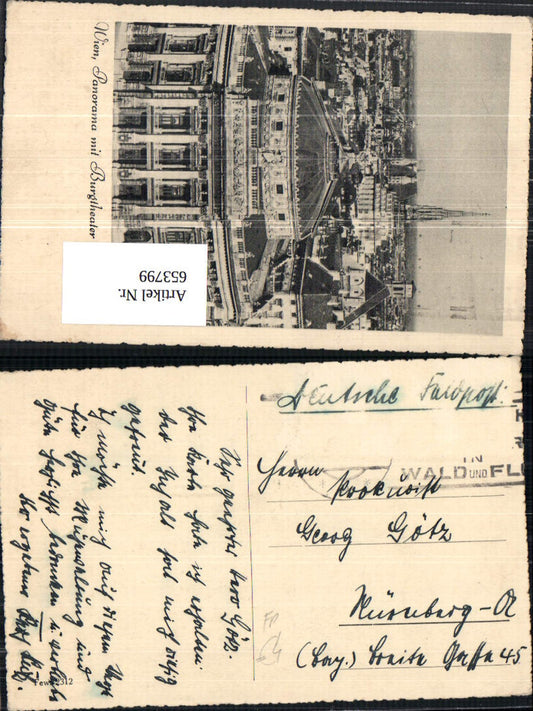 Wien, Panorama mit Burgtheater
Artikel Nr.
653799
Deutsche Feldpost.
IN
WALD UND FLU
Herrn
Prokurist
Georg Götz
Nürnberg-A
(Bay.) Breite Gasse 45
Sehr geehrter Herr Götz.
Ihre Karte habe ich erhalten.
Der Inhalt hat mich richtig
gefreut.
Ich möchte mich auf diesem Wege
für Ihre Mühewaltung und
Güte herzlichst bedanken u. verbleibe
Ihr ergebener